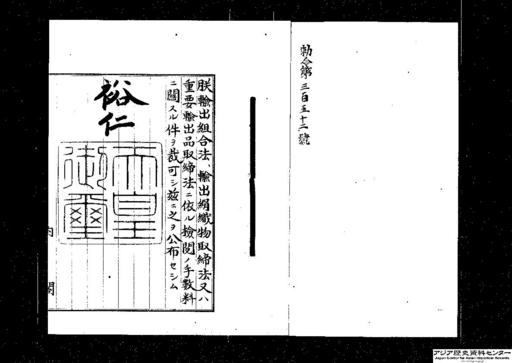 勅令第三百五十二號
朕輸出組合法、輸出絹織物取締法又ハ
重要輸出品取締法ニ依ル檢閲ノ手數料
ニ關スル件ヲ裁可シ茲ニ之ヲ公布セシム
裕仁
天皇
御璽
内閣
アジア歴史資料センター
Japan Center for Asian Historical Records